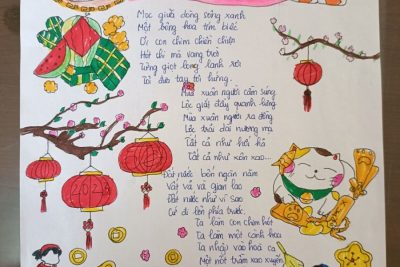 Mọc giữa dòng sông xanh
Một bông hoa tím biếc
Ơi con chim chiền chiện
Hót chi mà vang trời
Từng giọt long lanh rơi
Tôi đưa tay tôi hứng.
Mùa xuân người cầm súng
Lộc giắt đầy quanh lưng
Mùa xuân người ra đồng
Lộc trải dài nương mạ
Tất cả như hối hả
Tất cả như xôn xao...
Đất nước bốn ngàn năm
Vất vả và gian lao
Đất nước như vì sao
Cứ đi lên phía trước.
Ta làm con chim hót
Ta làm một cành hoa
Ta nhập vào hoà ca
Một nốt trầm xao xuyến